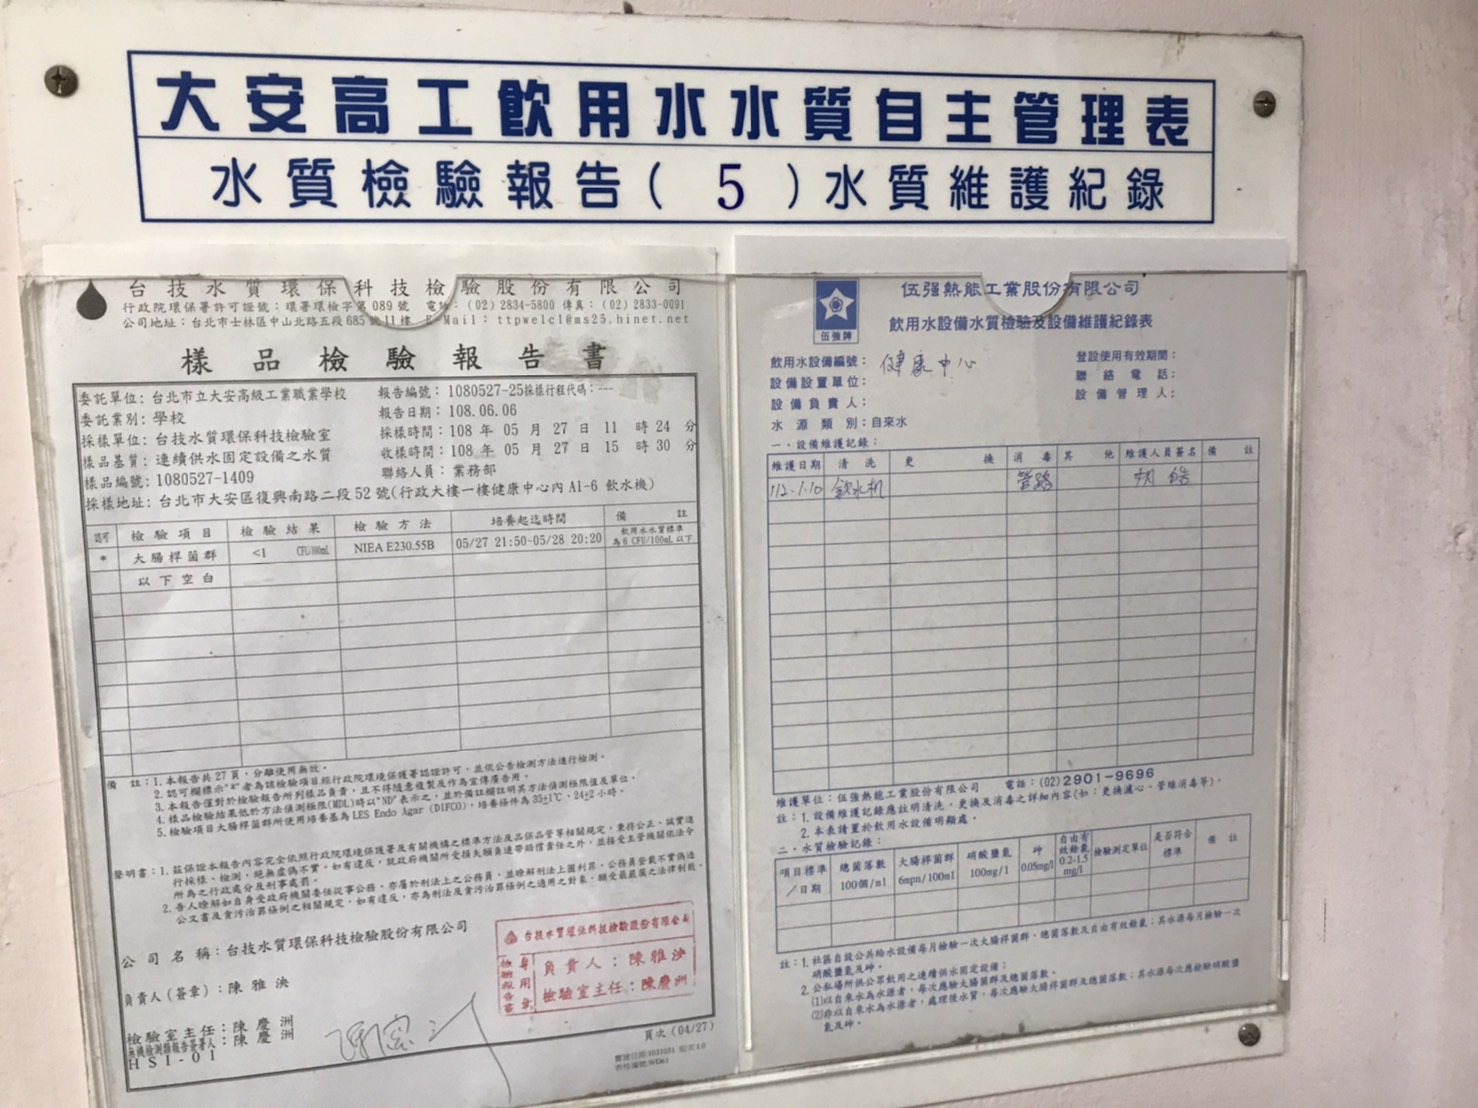 大安高工飲用水水質自主管理表
水質檢驗報告( 5 )水質維護紀錄
台技水質環保科技檢驗股份有限公司
行政院環保署許可證號：環署環檢字第089號 電話：(02) 2834-5800 傳真：(02) 2833-0091
公司地址：台北市士林區中山北路五段685號11樓 E-Mail：ttpwelcl@ms25.hinet.net
樣品檢驗報告書
委託單位：台北市立大安高級工業職業學校 報告編號：1080527-25採樣行程代碼：---
委託業別：學校 報告日期：108.06.06
採樣單位：台技水質環保科技檢驗室 採樣時間：108 年 05 月 27 日 11 時 24 分
樣品基質：連續供水固定設備之水質 收樣時間：108 年 05 月 27 日 15 時 30 分
樣品編號：1080527-1409 聯絡人員：業務部
採樣地址：台北市大安區復興南路二段52號(行政大樓一樓健康中心內A1-6 飲水機)
認可 檢驗項目 檢驗結果 檢驗方法 培養起迄時間 備註
* 大腸桿菌群 <1 CFU/100mL NIEA E230.55B 05/27 21:50-05/28 20:20 飲用水水質標準為6 CFU/100mL以下
以下空白
備 註：1.本報告共27頁，分離使用無效。
2.認可欄標示"*"者為該檢驗項目經行政院環境保護署認證許可，並依公告檢測方法進行檢測。
3.本報告僅對於檢驗報告所列樣品負責，且不得隨意複製及作為宣傳廣告用。
4.樣品檢驗結果低於方法偵測極限(MDL)時以"ND"表示之，並於備註欄註明其方法偵測極限值及單位。
5.檢驗項目大腸桿菌群所使用培養基為LES Endo Agar (DIFCO)，培養條件為35±1℃、24±2小時。
聲明書：1.茲保證本報告內容完全依照行政院環境保護署及有關機構之標準方法及品保品管等相關規定，秉持公正、誠實進
行採樣、檢測，絕無虛偽不實，如有違反，就政府機關所受損失願負連帶賠償責任之外，並接受主管機關依法令
所為之行政處分及刑事處罰。
2.吾人瞭解如自身受政府機關委任從事公務，亦屬於刑法上之公務員，並瞭解刑法上圖利罪、公務員登載不實偽造
公文書及貪污治罪條例之相關規定，如有違反，亦為刑法及貪污治罪條例之適用之對象，願受最嚴厲之法律制裁。
公司名稱：台技水質環保科技檢驗股份有限公司
負責人(簽章)：陳雅泱
檢驗室主任：陳慶洲
無機檢測類報告簽署人：陳慶洲
HSI-01
台技水質環保科技檢驗股份有限公司
負責人：陳雅泱
檢驗室主任：陳慶洲
頁次(04/27)
伍強牌
伍強熱能工業股份有限公司
飲用水設備水質檢驗及設備維護紀錄表
飲用水設備編號：健康中心 登設使用有效期間：
設備設置單位： 聯絡電話：
設備負責人： 設備管理人：
水源類別：自來水
一、設備維護記錄：
維護日期 清洗 更換 消毒 其他 維護人員簽名 備註
112.1.10 飲水机 管路
維護單位：伍強熱能工業股份有限公司 電話：(02)2901-9696
註：1.設備維護記錄應註明清洗、更換及消毒之詳細內容(如：更換濾心、管維消毒等)。
2.本表請置於飲用水設備明顯處。
二、水質檢驗記錄：
項目標準／日期 總菌落數100個/ml 大腸桿菌群6mpn/100ml 硝酸鹽氮100mg/l 砷0.05mg/l 自由有效餘氯0.2-1.5mg/l 檢驗測定單位 是否符合標準 備註
註：1.社區自設公共給水設備每月檢驗一次大腸桿菌群、總菌落數及自由有效餘氯；其水源每月檢驗一次
硝酸鹽氮及砷。
2.公私場所供公眾飲用之連續供水固定設備：
(1)以自來水為水源者，每次應驗大腸桿菌群及總菌落數。
(2)非以自來水為水源者，處理後水質，每次應驗大腸桿菌群及總菌落數；其水源每次應檢驗硝酸鹽
氮及砷。